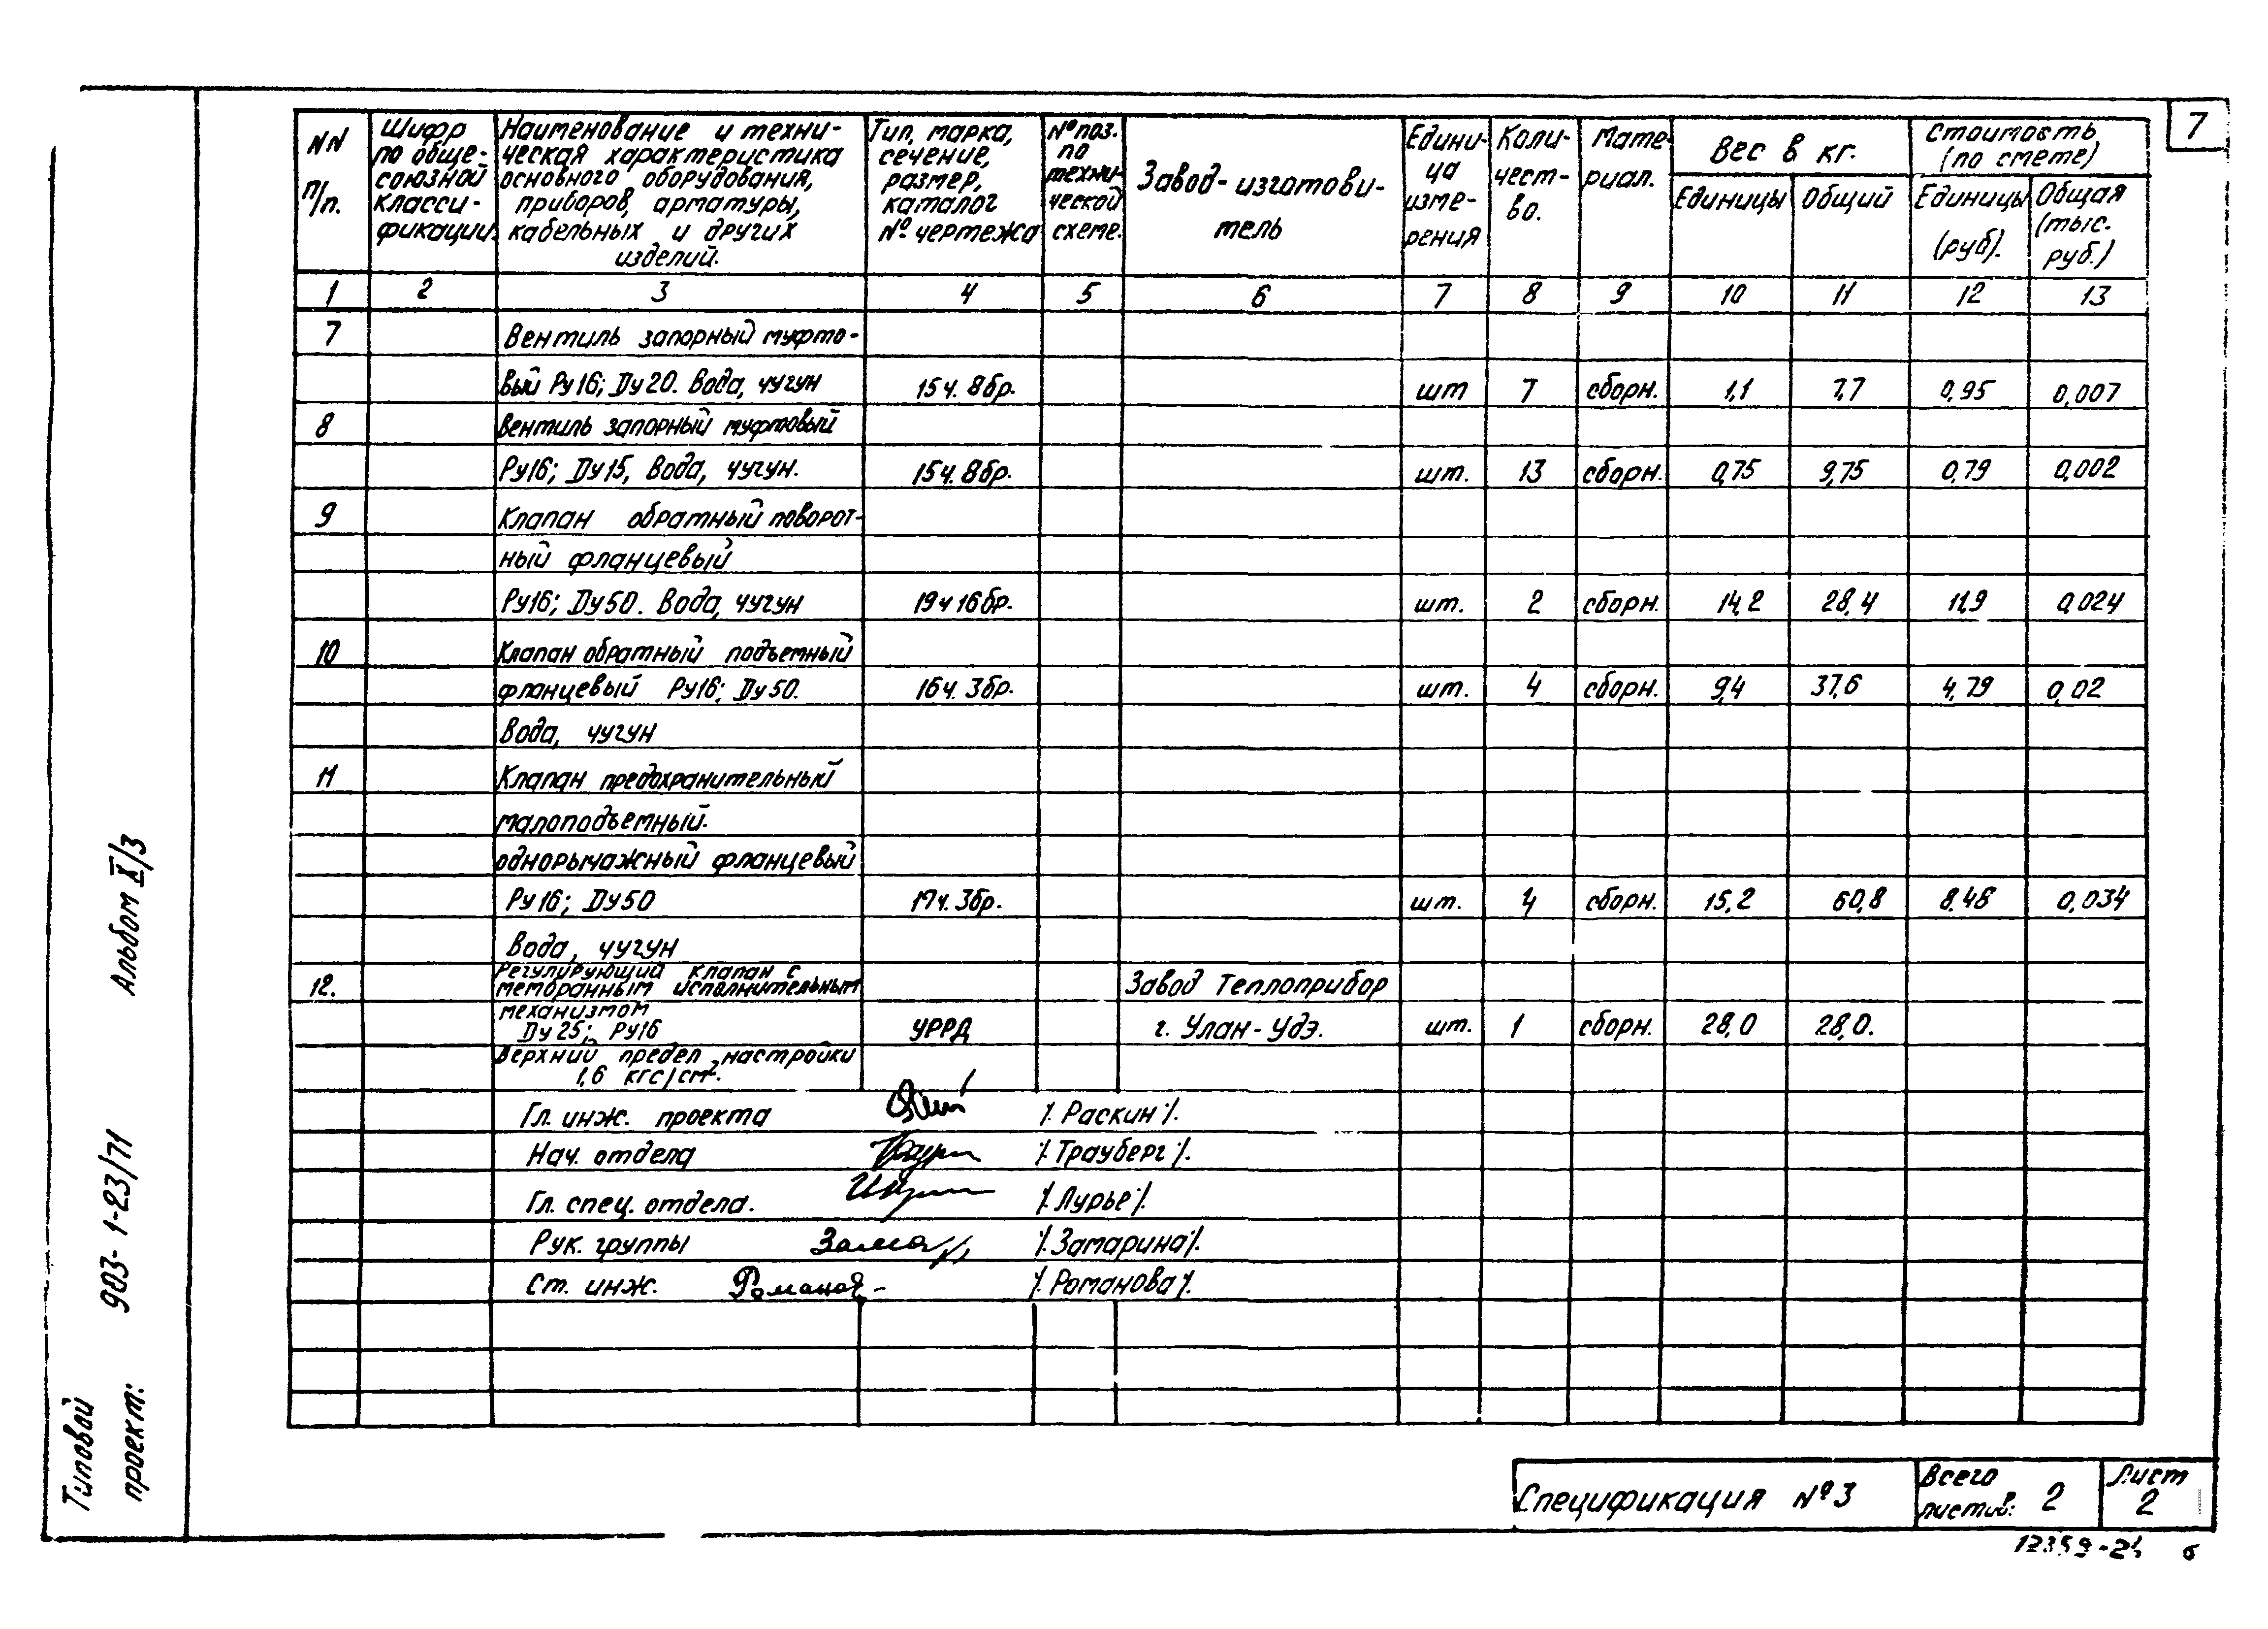 7
NN п/п.
Шифр по обще-союзной класси-фикации.
Наименование и техни-ческая характеристика основного оборудования, приборов, арматуры, кабельных и других изделий.
Тип, марка, сечение, размер, каталог № чертежа
№ поз. по техни-ческой схеме.
Завод-изготови-тель
Едини-ца изме-рения
Коли-чест-во.
Мате-риал.
Вес в кг.
Единицы Общий
Стоимость (по смете)
Единицы (руб).
Общая (тыс. руб.)
1 2 3 4 5 6 7 8 9 10 11 12 13
7 Вентиль запорный муфто-
вый Ру16; Ду20. Вода, чугун 15ч. 8бр. шт 7 сборн. 1,1 7,7 0,95 0,007
8 Вентиль запорный муфтовый
Ру16; Ду15, Вода, чугун. 15ч. 8бр. шт. 13 сборн. 0,75 9,75 0,79 0,002
9 Клапан обратный поворот-
ный фланцевый
Ру16; Ду50. Вода, чугун 19ч 16бр. шт. 2 сборн. 14,2 28,4 11,9 0,024
10 Клапан обратный подъемный
фланцевый Ру16; Ду50. 16ч. 3бр. шт. 4 сборн. 9,4 37,6 4,79 0,02
Вода, чугун
11 Клапан предохранительный
малоподъемный.
однорычажный фланцевый
Ру16; Ду50 17ч. 3бр. шт. 4 сборн. 15,2 60,8 8,48 0,034
Вода, чугун
12. Регулирующий клапан с
мембранным исполнительным Завод Теплоприбор
механизмом
Ду25; Ру16 УРРД г. Улан-Удэ. шт. 1 сборн. 28,0 28,0.
Верхний предел настройки
1,6 кгс/см².
Гл. инж. проекта /. Раскин /.
Нач. отдела /. Трауберг /.
Гл. спец. отдела. /. Лурье /.
Рук. группы /. Замарина /.
Ст. инж. Романов- /. Романова /.
Альбом X/3
Типовой проект: 903-1-23/71
Спецификация №3
Всего листов: 2
Лист 2
12359-24 6